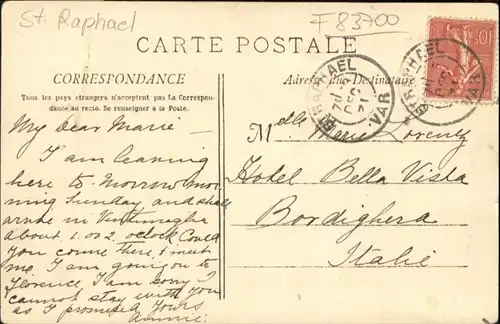 St. Raphael
F 83700
CARTE POSTALE
CORRESPONDANCE
Tous les pays étrangers n'acceptent pas la Correspon-
dance au recto. Se renseigner à la Poste
Adresse du Destinataire
ST RAPHAEL
VAR
ST RAPHAEL
VAR
10
My dear Marie –
I am leaving
here to Morrow mor
ning Sunday and shall
arrive in Vintimiglia
about 1. or 2. oclock Could
you come there & meet
me. I am going to
Florence. I am sorry I
cannot stay with you
as I promised yours
Annie.
Melle Marie Lorentz
Hotel Bella Vista
Bordighera
Italie